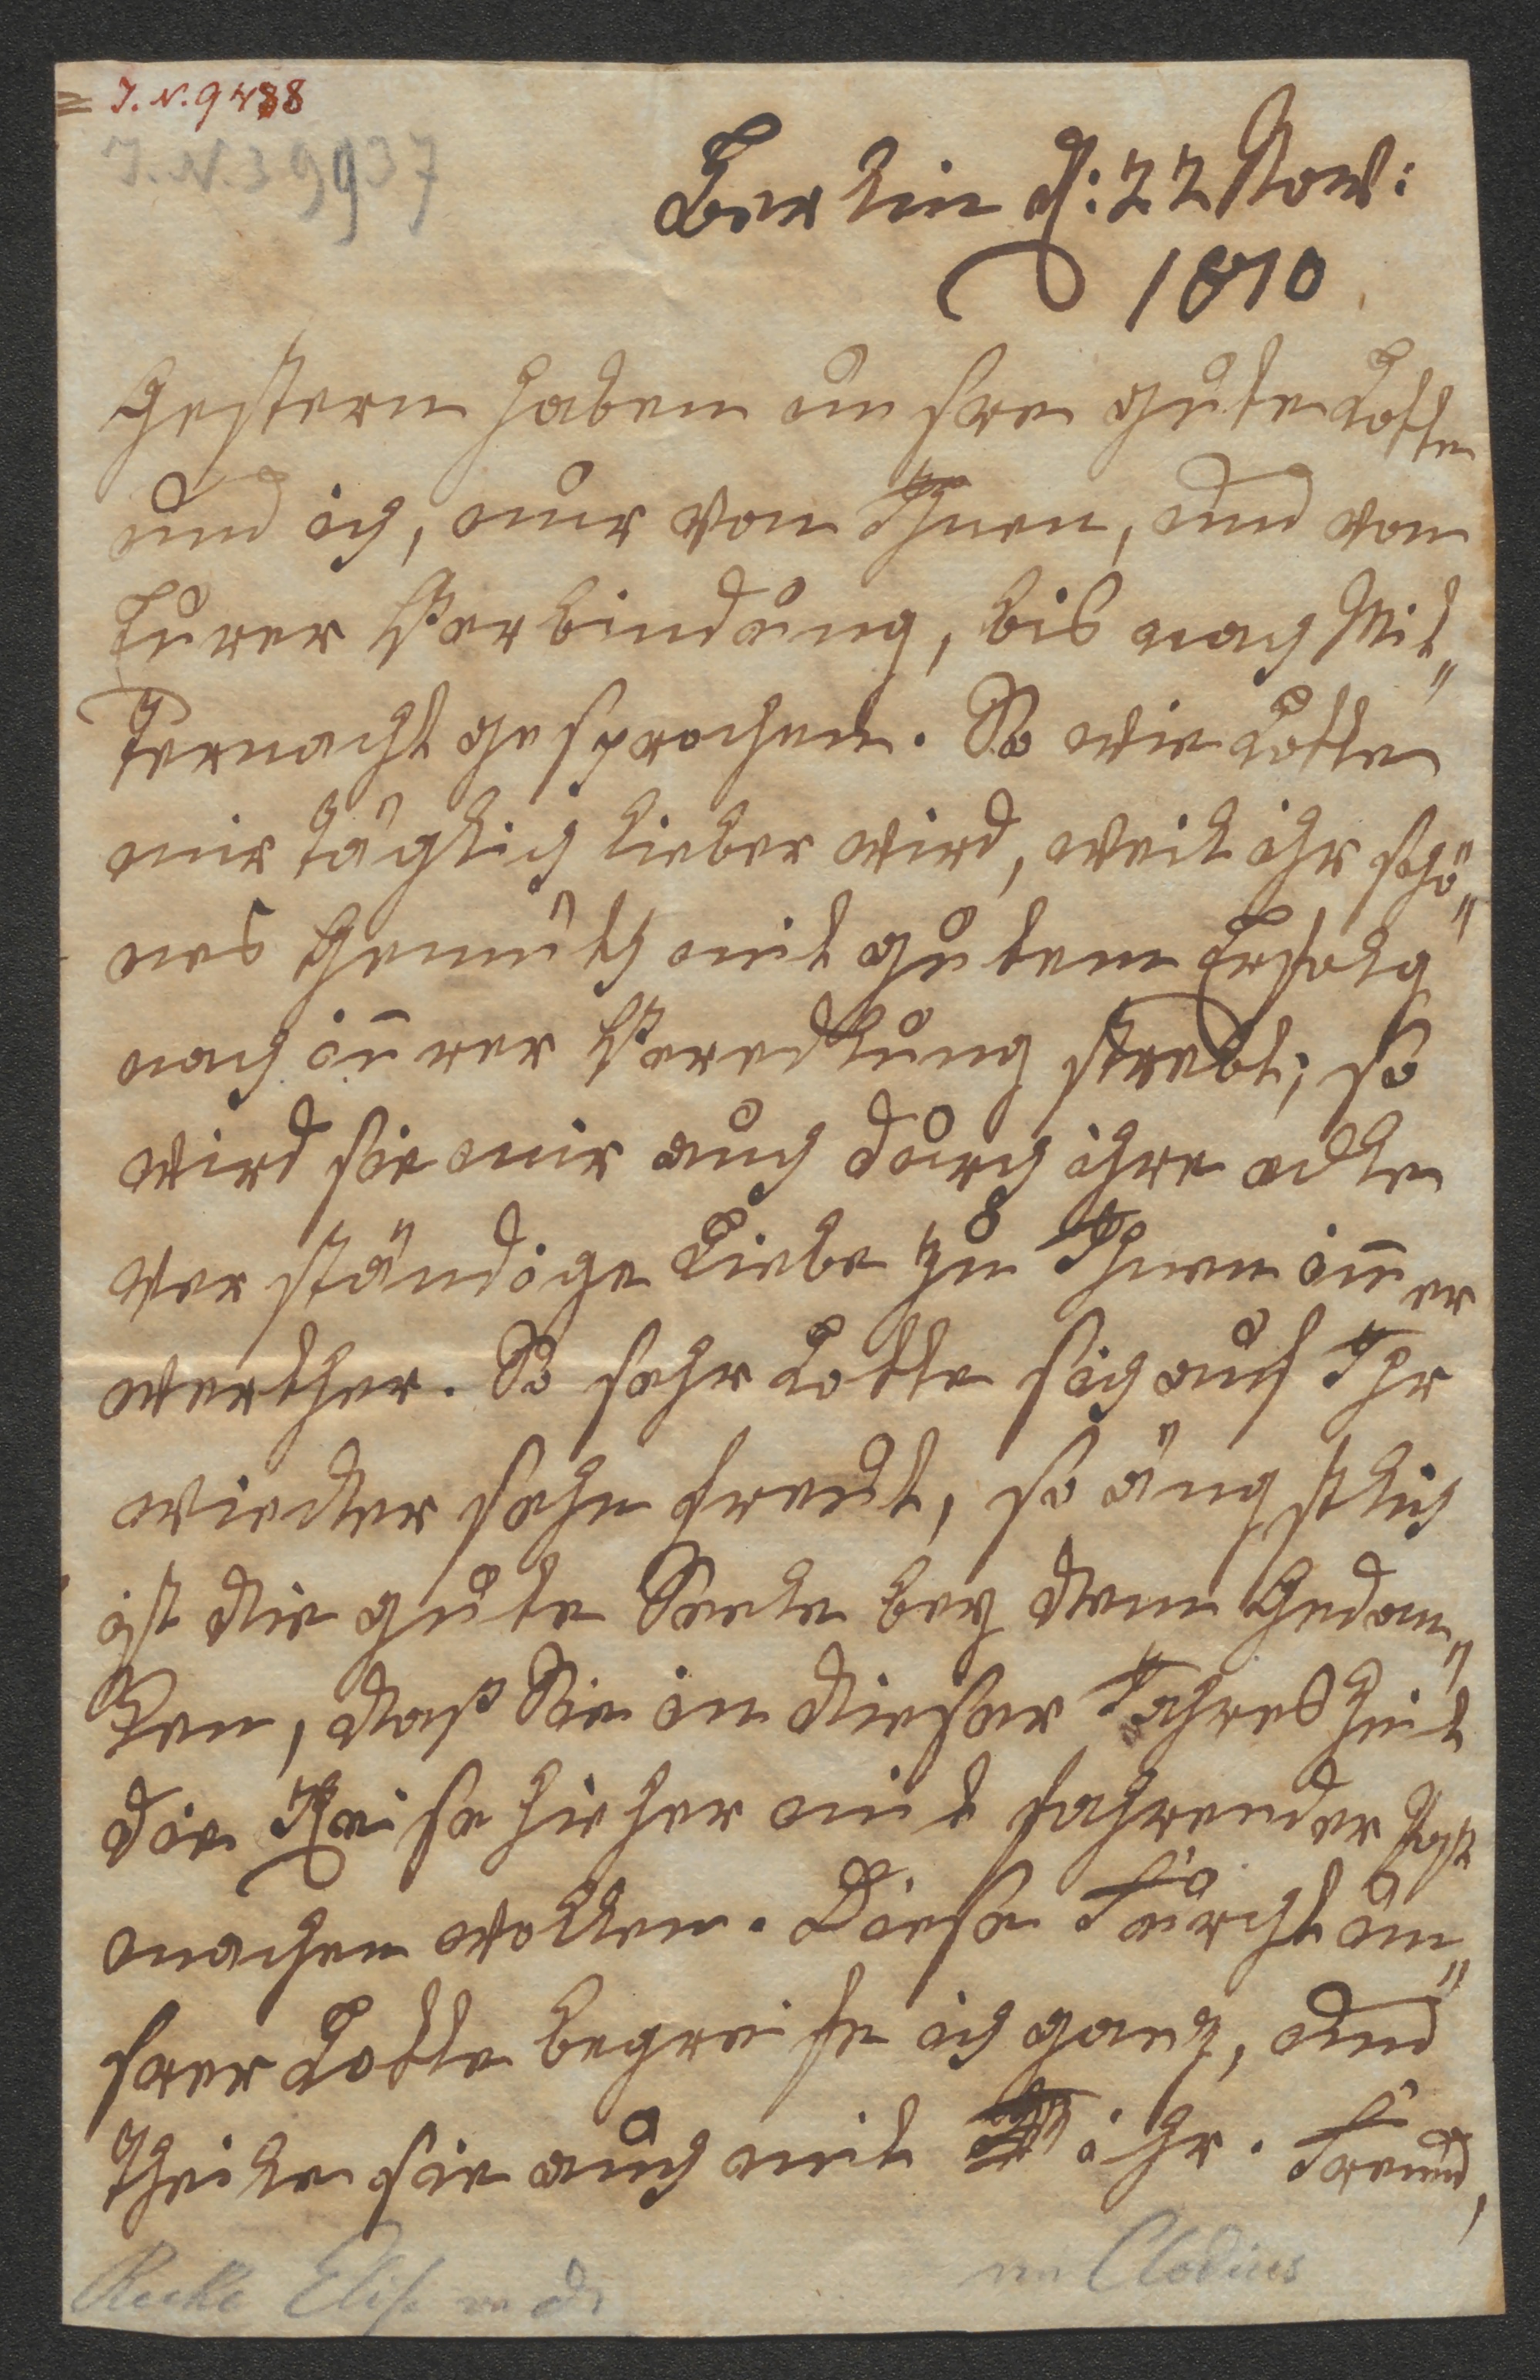 = I.N. 9488
I.N. 39937
Berlin d: 22 Nov:
1810
Gestern haben unsre gute Lotte
und ich, nur von Ihnen, und von
Eurer Verbindung, bis nach Mit„
ternacht gesprochen. So wie Lotte
mir täglich lieber wird, weil ihr schö„
nes Gemüth mit gutem Erfolg
nach iñrer Veredlung strebt; so
wird sie mir auch durch ihre edle
verständige Liebe zu Ihnen im̅er
werther. So sehr Lotte sich auf Ihr
wiedersehn freut, so ängstlich
ist die gute Seele bey dem Gedan„
ken, daß Sie in dieser Jahreszeit
die Reise hieher mit fahrender Post
machen wollen. Diese Furcht un„
srer Lotte begreife ich ganz, und
theile sie auch mit ihr. Freund,
Recke Elise v. d.
an Clodius